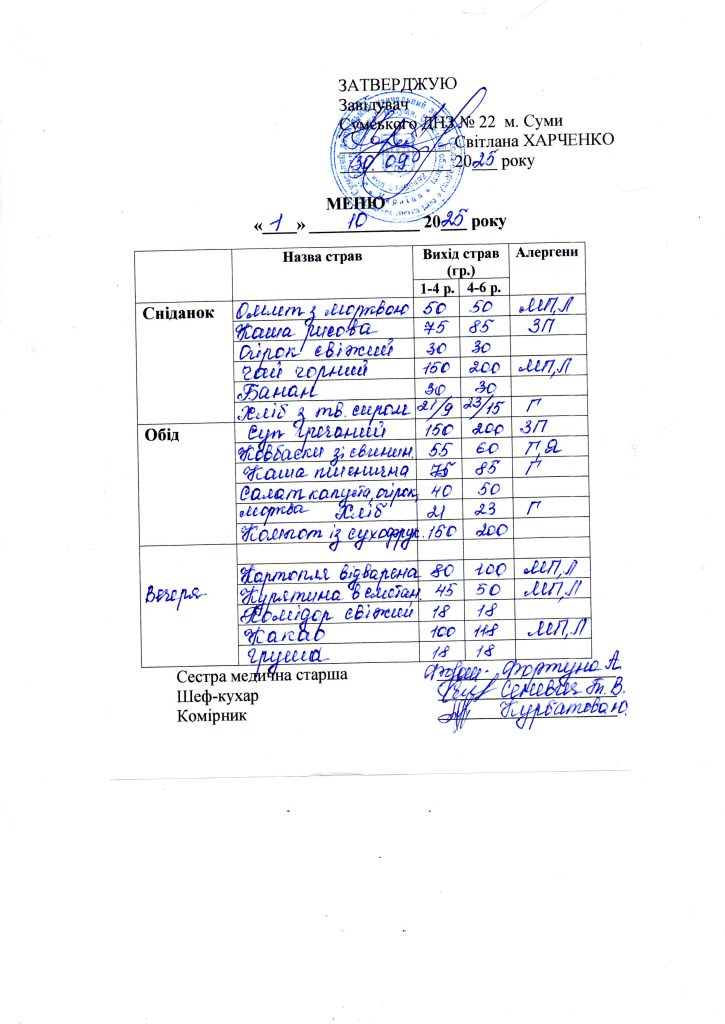 ЗАТВЕРДЖУЮ
Завідувач
Сумського ДНЗ № 22 м. Суми
Світлана ХАРЧЕНКО
30 09 2025 року
МЕНЮ
« 1 » 10 2025 року
Назва страв Вихід страв (гр.) Алергени
1-4 р. 4-6 р.
Сніданок Омлет з морквою 50 50 МП,Л
Каша рисова 75 85 ЗП
Огірок свіжий 30 30
Чай чорний 150 200 МП,Л
Банан 30 30
Хліб з тв. сиром 21/9 23/15 Г
Обід Суп гречаний 150 200 ЗП
Ковбаски зі свинин. 55 60 Г,Я
Каша пшенична 75 85 Г
Салат капуста, огірок, 40 50
морква Хліб 21 23 Г
Компот із сухофрук. 150 200
Вечеря
Картопля відварена 80 100 МП,Л
Курятина в сметан. 45 50 МП,Л
Помідор свіжий 18 18
Какао 100 118 МП,Л
Груша 18 18
Сестра медична старша Фортуна А.
Шеф-кухар Т. В.
Комірник